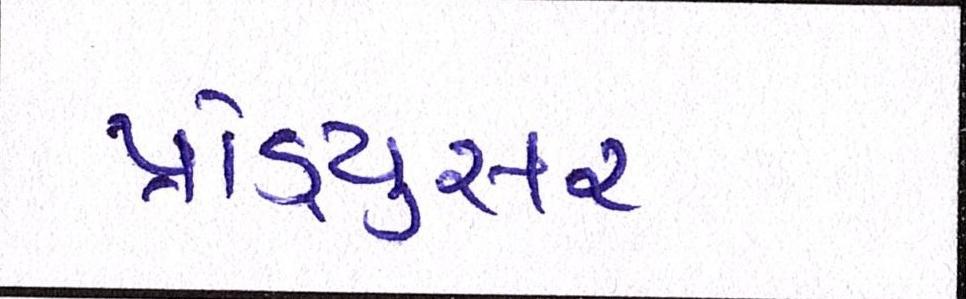 પ્રોડ્યુસર